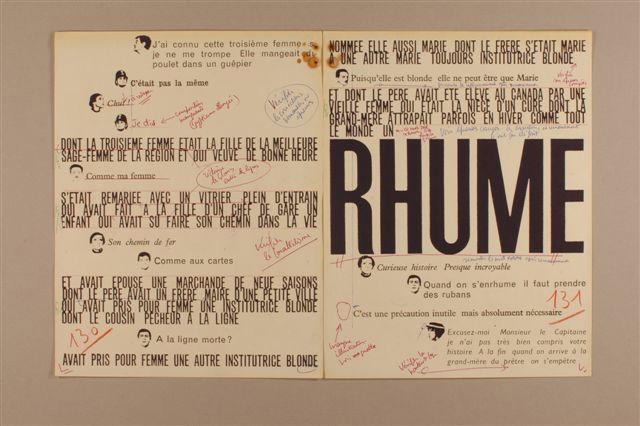 J'ai connu cette troisième femme s
je ne me trompe Elle mangeait du
poulet dans un guêpier
C'était pas la même
Chut!
Je dis
DONT LA TROISIEME FEMME ETAIT LA FILLE DE LA MEILLEURE
SAGE-FEMME DE LA REGION ET QUI VEUVE DE BONNE HEURE
Comme ma femme
S'ETAIT REMARIEE AVEC UN VITRIER PLEIN D'ENTRAIN
QUI AVAIT FAIT A LA FILLE D'UN CHEF DE GARE UN
ENFANT QUI AVAIT SU FAIRE SON CHEMIN DANS LA VIE
Son chemin de fer
Comme aux cartes
ET AVAIT EPOUSE UNE MARCHANDE DE NEUF SAISONS
DONT LE PERE AVAIT UN FRERE MAIRE D'UNE PETITE VILLE
QUI AVAIT PRIS POUR FEMME UNE INSTITUTRICE BLONDE
DONT LE COUSIN PECHEUR A LA LIGNE
130
A la ligne morte?
AVAIT PRIS POUR FEMME UNE AUTRE INSTITUTRICE BLONDE
NOMMEE ELLE AUSSI MARIE DONT LE FRERE S'ETAIT MARIE
A UNE AUTRE MARIE TOUJOURS INSTITUTRICE BLONDE
Puisqu'elle est blonde elle ne peut être que Marie
ET DONT LE PERE AVAIT ETE ELEVE AU CANADA PAR UNE
VIEILLE FEMME QUI ETAIT LA NIECE D'UN CURE DONT LA
GRAND-MERE ATTRAPAIT PARFOIS EN HIVER COMME TOUT
LE MONDE UN
RHUME
Curieuse histoire Presque incroyable
Quand on s'enrhume il faut prendre
des rubans
131
C'est une précaution inutile mais absolument nécessaire
Excusez-moi Monsieur le Capitaine
je n'ai pas très bien compris votre
histoire A la fin quand on arrive à la
grand-mère du prêtre on s'empêtre